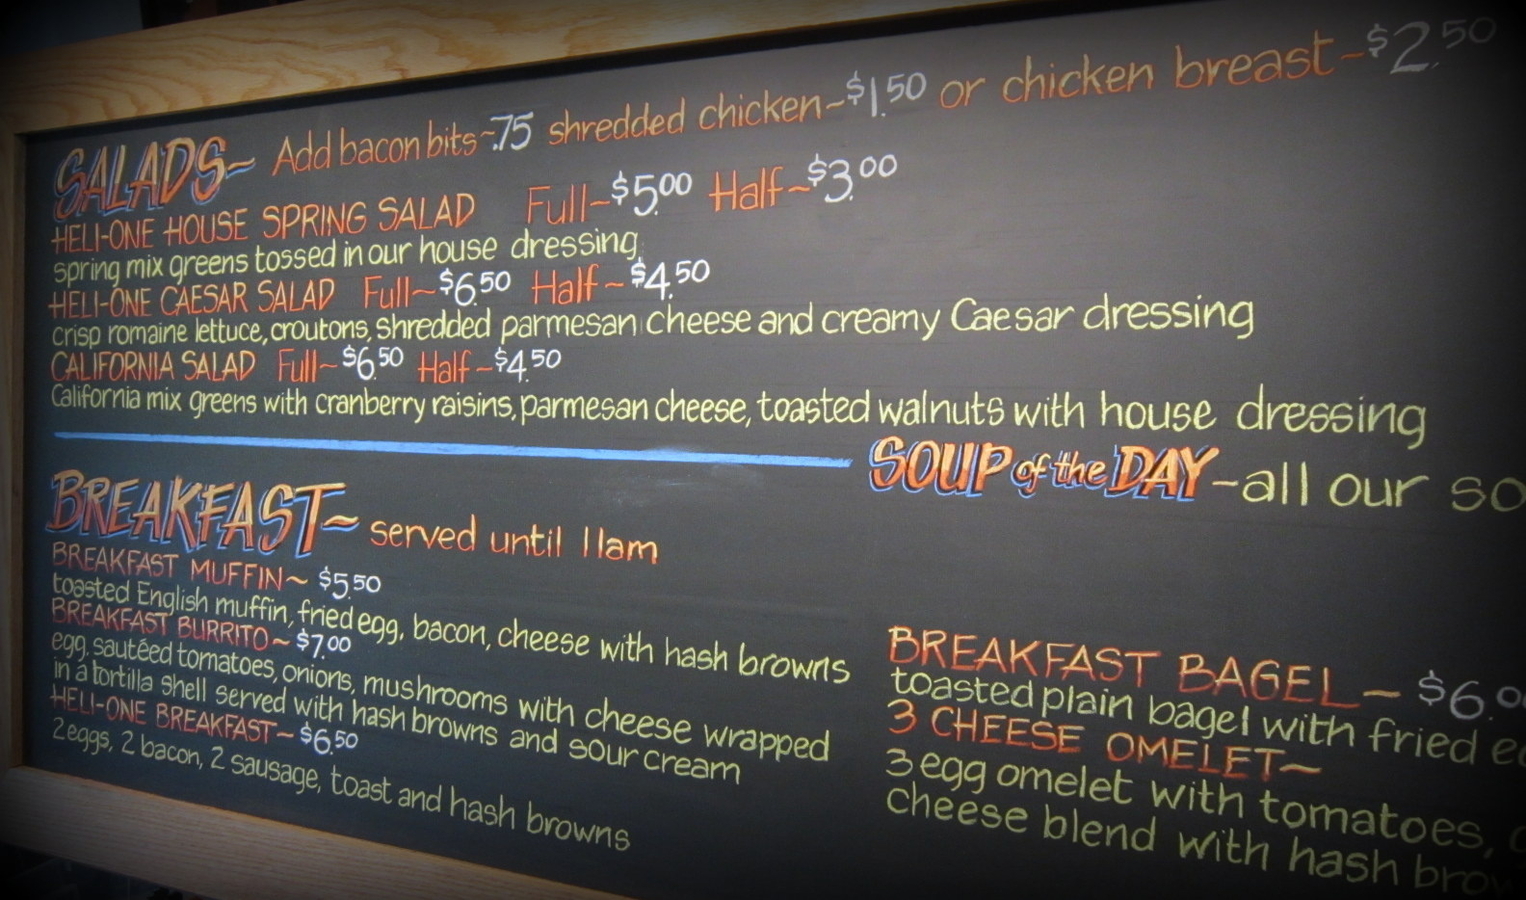 SALADS~ Add bacon bits~.75 shredded chicken~$1.50 or chicken breast~$2.50
HELI-ONE HOUSE SPRING SALAD Full~$5.00 Half~$3.00
spring mix greens tossed in our house dressing
HELI-ONE CAESAR SALAD Full~$6.50 Half~$4.50
crisp romaine lettuce, croutons, shredded parmesan cheese and creamy Caesar dressing
CALIFORNIA SALAD Full~$6.50 Half~$4.50
California mix greens with cranberry raisins, parmesan cheese, toasted walnuts with house dressing
SOUP of the DAY~all our
BREAKFAST~ served until 11am
BREAKFAST MUFFIN~ $5.50
toasted English muffin, fried egg, bacon, cheese with hash browns
BREAKFAST BURRITO~ $7.00
egg, sautéed tomatoes, onions, mushrooms with cheese wrapped
in a tortilla shell served with hash browns and sour cream
HELI-ONE BREAKFAST~ $6.50
2 eggs, 2 bacon, 2 sausage, toast and hash browns
BREAKFAST BAGEL~ $6.0
toasted plain bagel with fried
3 CHEESE OMELET~
3 egg omelet with tomatoes,
cheese blend with hash